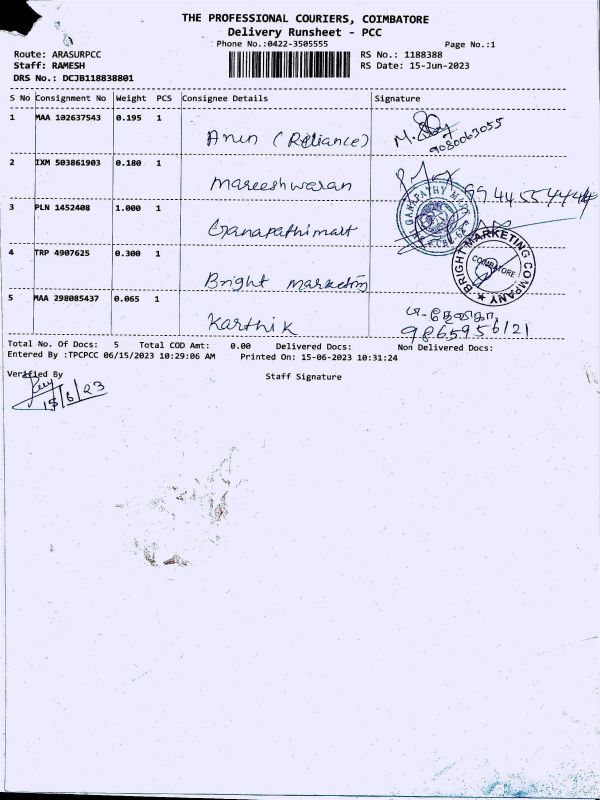 THE PROFESSIONAL COURIERS, COIMBATORE
Delivery Runsheet - PCC
Phone No.:0422-3505555 Page No.:1
Route: ARASURPCC RS No.: 1188388
Staff: RAMESH RS Date: 15-Jun-2023
DRS No.: DCJB118838801
S No Consignment No Weight PCS Consignee Details Signature
1 MAA 102637543 0.195 1
Arun (Reliance) 9080063055
2 IXM 503861903 0.180 1
Mareeshwaran
3 PLN 1452408 1.000 1
Ganapathimart
GANAPATHY MART
4 TRP 4907625 0.300 1
Bright marketing
BRIGHT MARKETING COMPANY
COIMBATORE
5 MAA 298085437 0.065 1
Karthik
9865956121
Total No. Of Docs: 5 Total COD Amt: 0.00 Delivered Docs: Non Delivered Docs:
Entered By :TPCPCC 06/15/2023 10:29:06 AM Printed On: 15-06-2023 10:31:24
Verified By Staff Signature
15/6/23